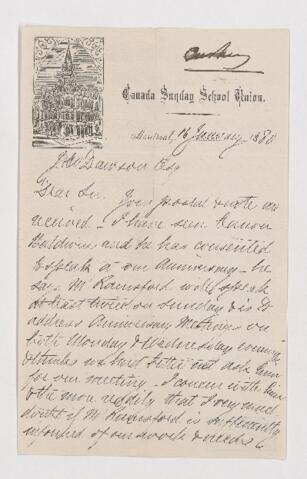 Canada Sunday School Union.
Montreal, 16 January 1880
J W Dawson Esq
Dear Sir. Your postal & note are
received – I have seen Canon
Baldwin and he has consented
to speak at our Anniversary – he
says Mr Rainsford will speak
at least twice on Sunday & is to
address Anniversary Meetings on
both Monday & Wednesday evenings
& thinks we had better not ask him
for our meeting – I concur with him
the more readily that I very much
doubt if Mr Rainsford is sufficiently
informed of our work & needs